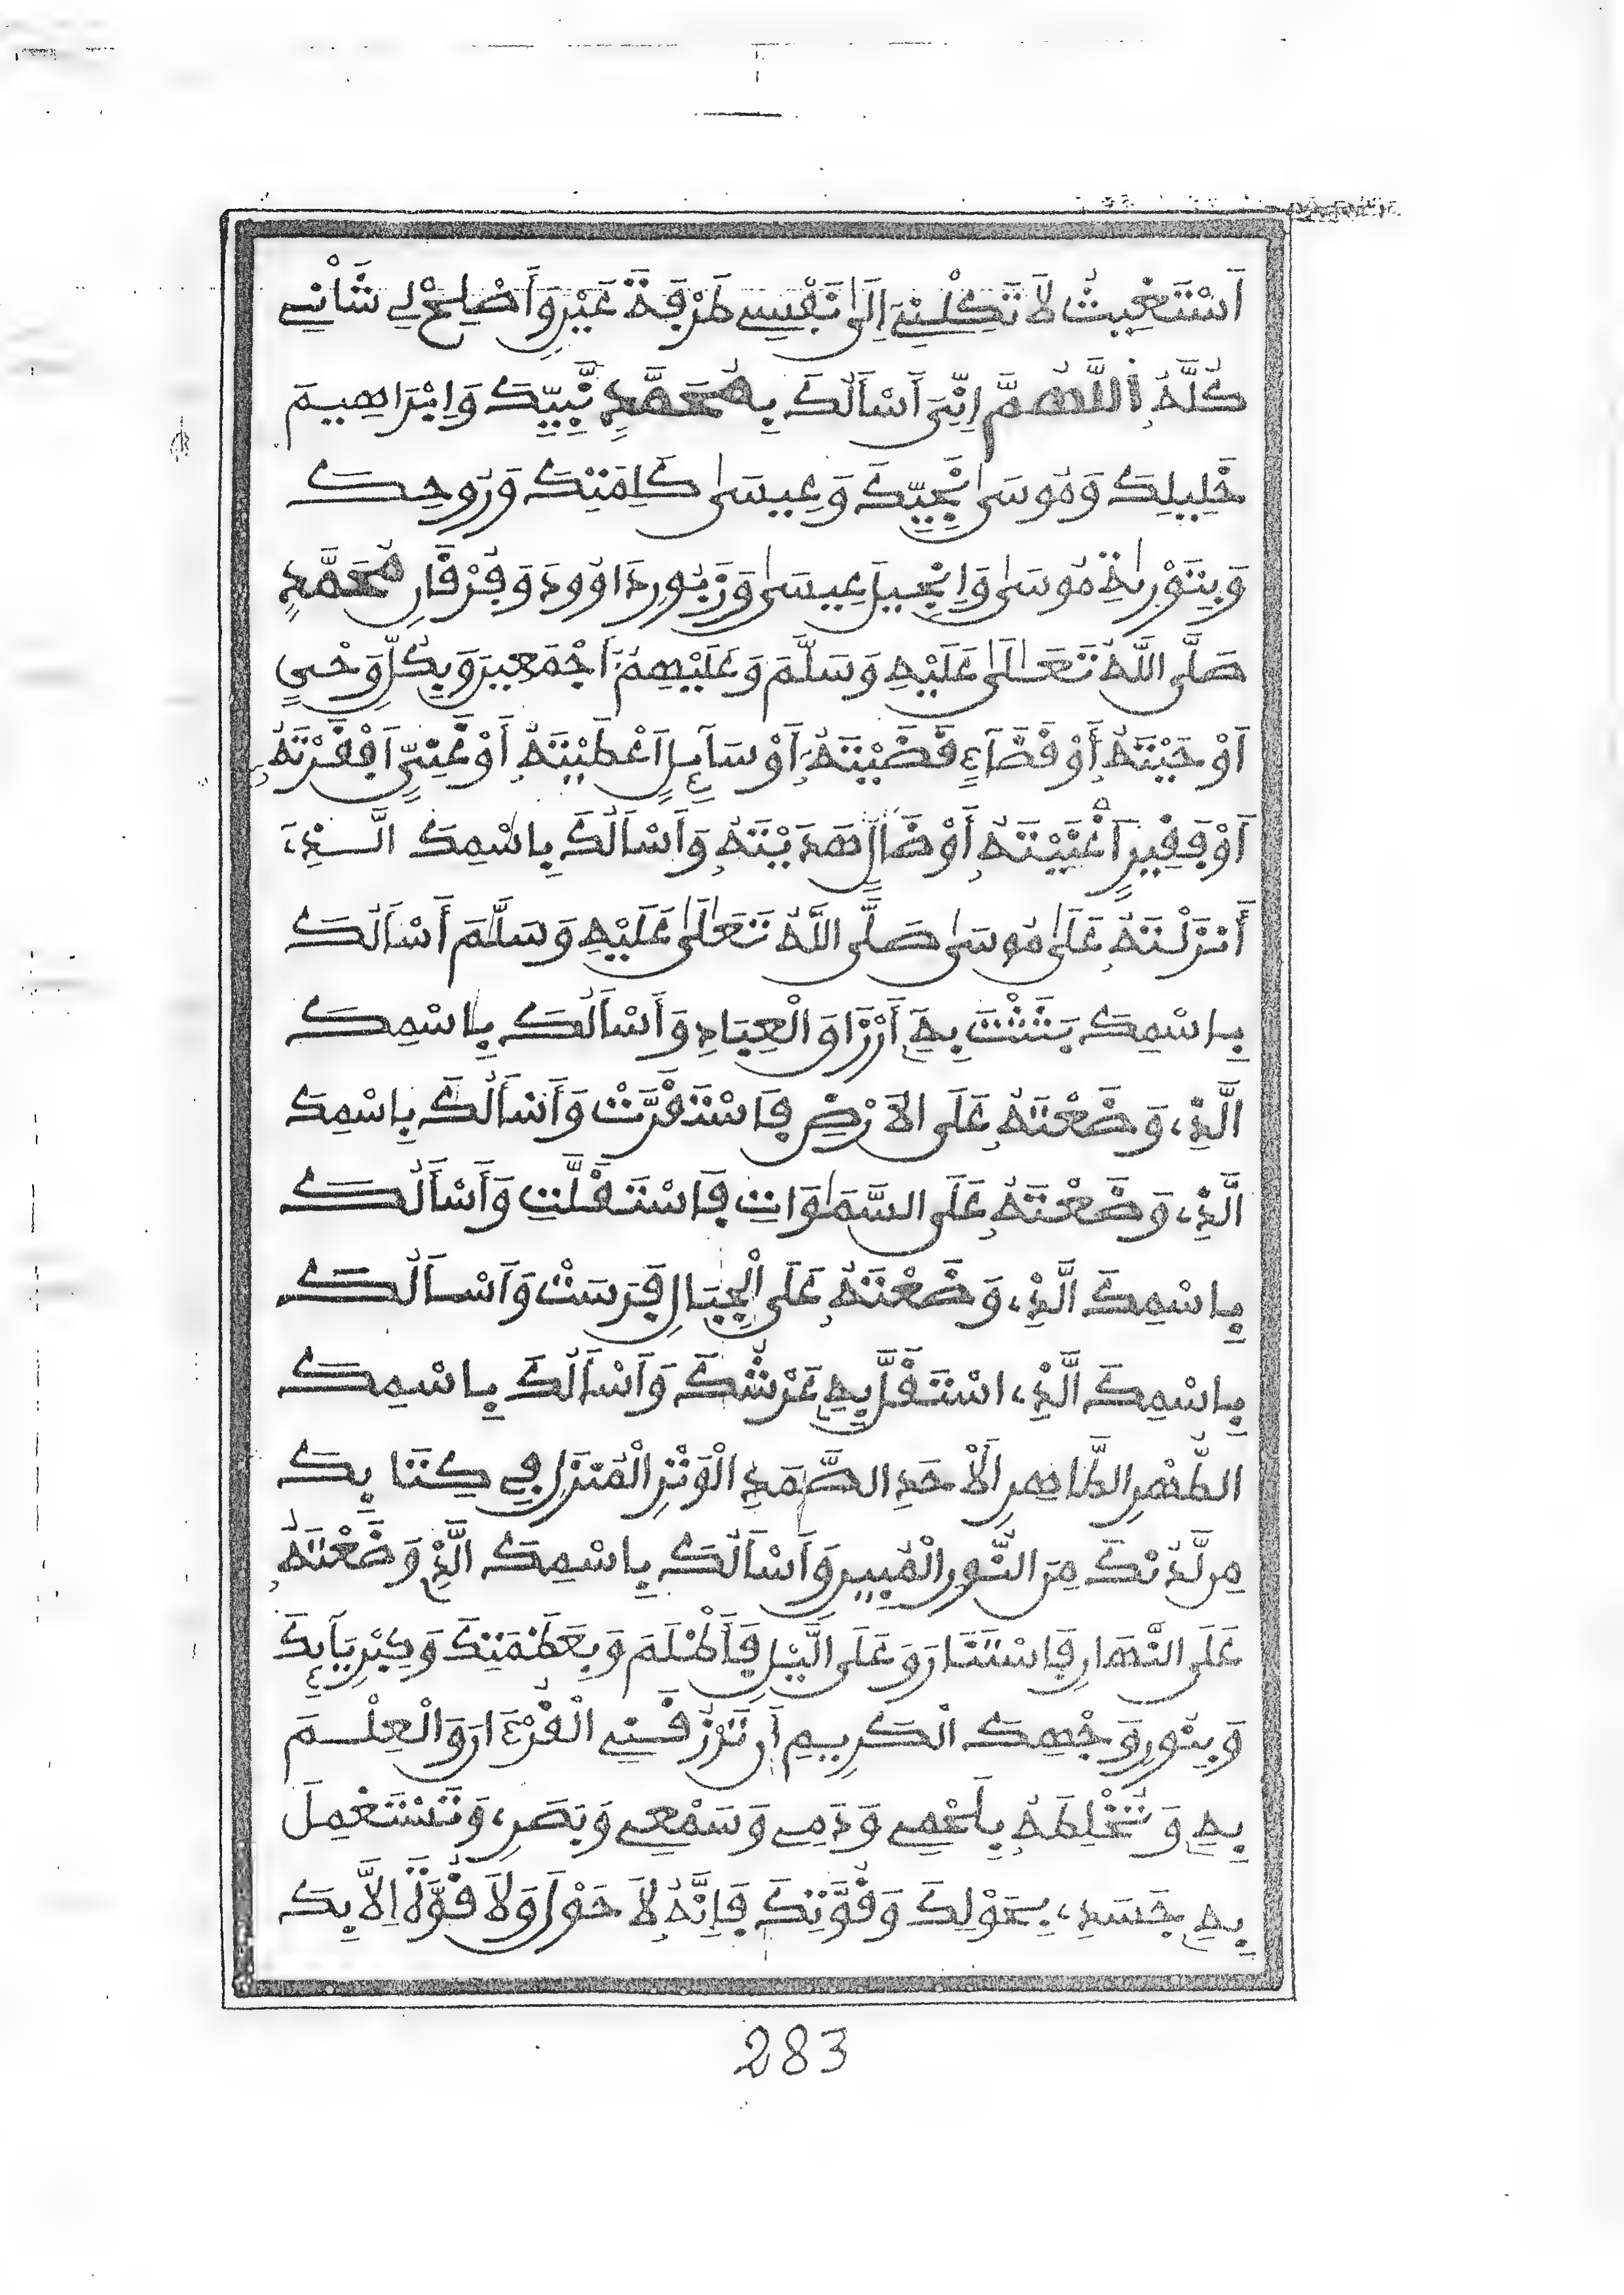 أَسْتَغِيثُ لاَ تَكِلْنِي إِلَىٰ نَفْسِي طَرْفَةَ عَيْنٍ وَأَصْلِحْ لِي شَأْنِي
كُلَّهُ اللَّهُمَّ إِنِّي أَسْأَلُكَ بِمُحَمَّدٍ نَّبِيِّكَ وَإِبْرَاهِيمَ
خَلِيلِكَ وَمُوسَىٰ نَجِيِّكَ وَعِيسَىٰ كَلِمَتِكَ وَرُوحِكَ
وَبِتَوْرَىٰةِ مُوسَىٰ وَإِنجِيلِ عِيسَىٰ وَزَبُورِ دَاوُودَ وَفُرْقَانِ مُحَمَّدٍ
صَلَّى اللَّهُ تَعَالَىٰ عَلَيْهِ وَسَلَّمَ وَعَلَيْهِمُ أَجْمَعِينَ وَبِكُلِّ وَحْيٍ
أَوْحَيْتَهُ أَوْ قَضَآءٍ قَضَيْتَهُ أَوْ سَآئِلٍ أَعْطَيْتَهُ أَوْ غَنِيٍّ أَفْقَرْتَهُ
أَوْ فَقِيرٍ أَغْنَيْتَهُ أَوْ ضَآلٍّ هَدَيْتَهُ وَأَسْأَلُكَ بِاسْمِكَ الَّذِي
أَنزَلْتَهُ عَلَىٰ مُوسَىٰ صَلَّى اللَّهُ تَعَالَىٰ عَلَيْهِ وَسَلَّمَ أَسْأَلُكَ
بِاسْمِكَ بَثَثْتَ بِهِ أَرْزَاقَ الْعِبَادِ وَأَسْأَلُكَ بِاسْمِكَ
الَّذِي وَضَعْتَهُ عَلَى الاَرْضِ فَاسْتَقَرَّتْ وَأَسْأَلُكَ بِاسْمِكَ
الَّذِي وَضَعْتَهُ عَلَى السَّمَٰوَاتِ فَاسْتَقَلَّتِ وَأَسْأَلُكَ
بِاسْمِكَ الَّذِي وَضَعْتَهُ عَلَى الْجِبَالِ فَرَسَتْ وَأَسْأَلُكَ
بِاسْمِكَ الَّذِي اسْتَقَلَّ بِهِ عَرْشُكَ وَأَسْأَلُكَ بِاسْمِكَ
الطُّهْرِ الطَّاهِرِ الْأَحَدِ الصَّمَدِ الْوَتْرِ الْمُنَزَّلِ فِي كِتَابِكَ
مِن لَّدُنْكَ مِنَ النُّورِ الْمُبِينِ وَأَسْأَلُكَ بِاسْمِكَ الَّذِي وَضَعْتَهُ
عَلَى النَّهَارِ فَاسْتَنَارَ وَعَلَى الَّيْلِ فَأَظْلَمَ وَبِعَظَمَتِكَ وَكِبْرِيَآئِكَ
وَبِنُورِ وَجْهِكَ الْكَرِيمِ أَن تَرْزُقَنِي الْقُرْءَانَ وَالْعِلْمَ
بِهِ وَتُخْلِطَهُ بِلَحْمِي وَدَمِي وَسَمْعِي وَبَصَرِي وَتَسْتَعْمِلَ
بِهِ جَسَدِي بِحَوْلِكَ وَقُوَّتِكَ فَإِنَّهُ لاَ حَوْلَ وَلاَ قُوَّةَ إِلاَّ بِكَ
283